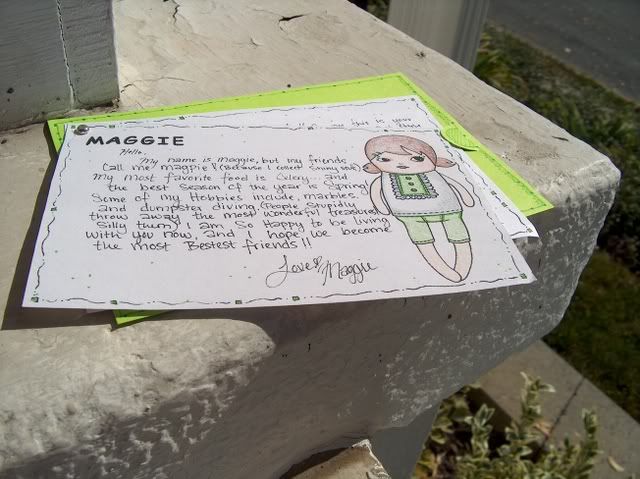 MAGGIE
Hello,
My name is maggie, but my friends
call me magpie! (because I covet shiny stuff)
My most favorite food is Celery, and
the best season of the year is Spring!
Some of my Hobbies include, marbles,
and dumpster diving (People stupidly
throw away the most wonderful treasures!
Silly them) I am so Happy to be living
with you now, and I hope we become
the most Bestest friends!!
Love Maggie
is your